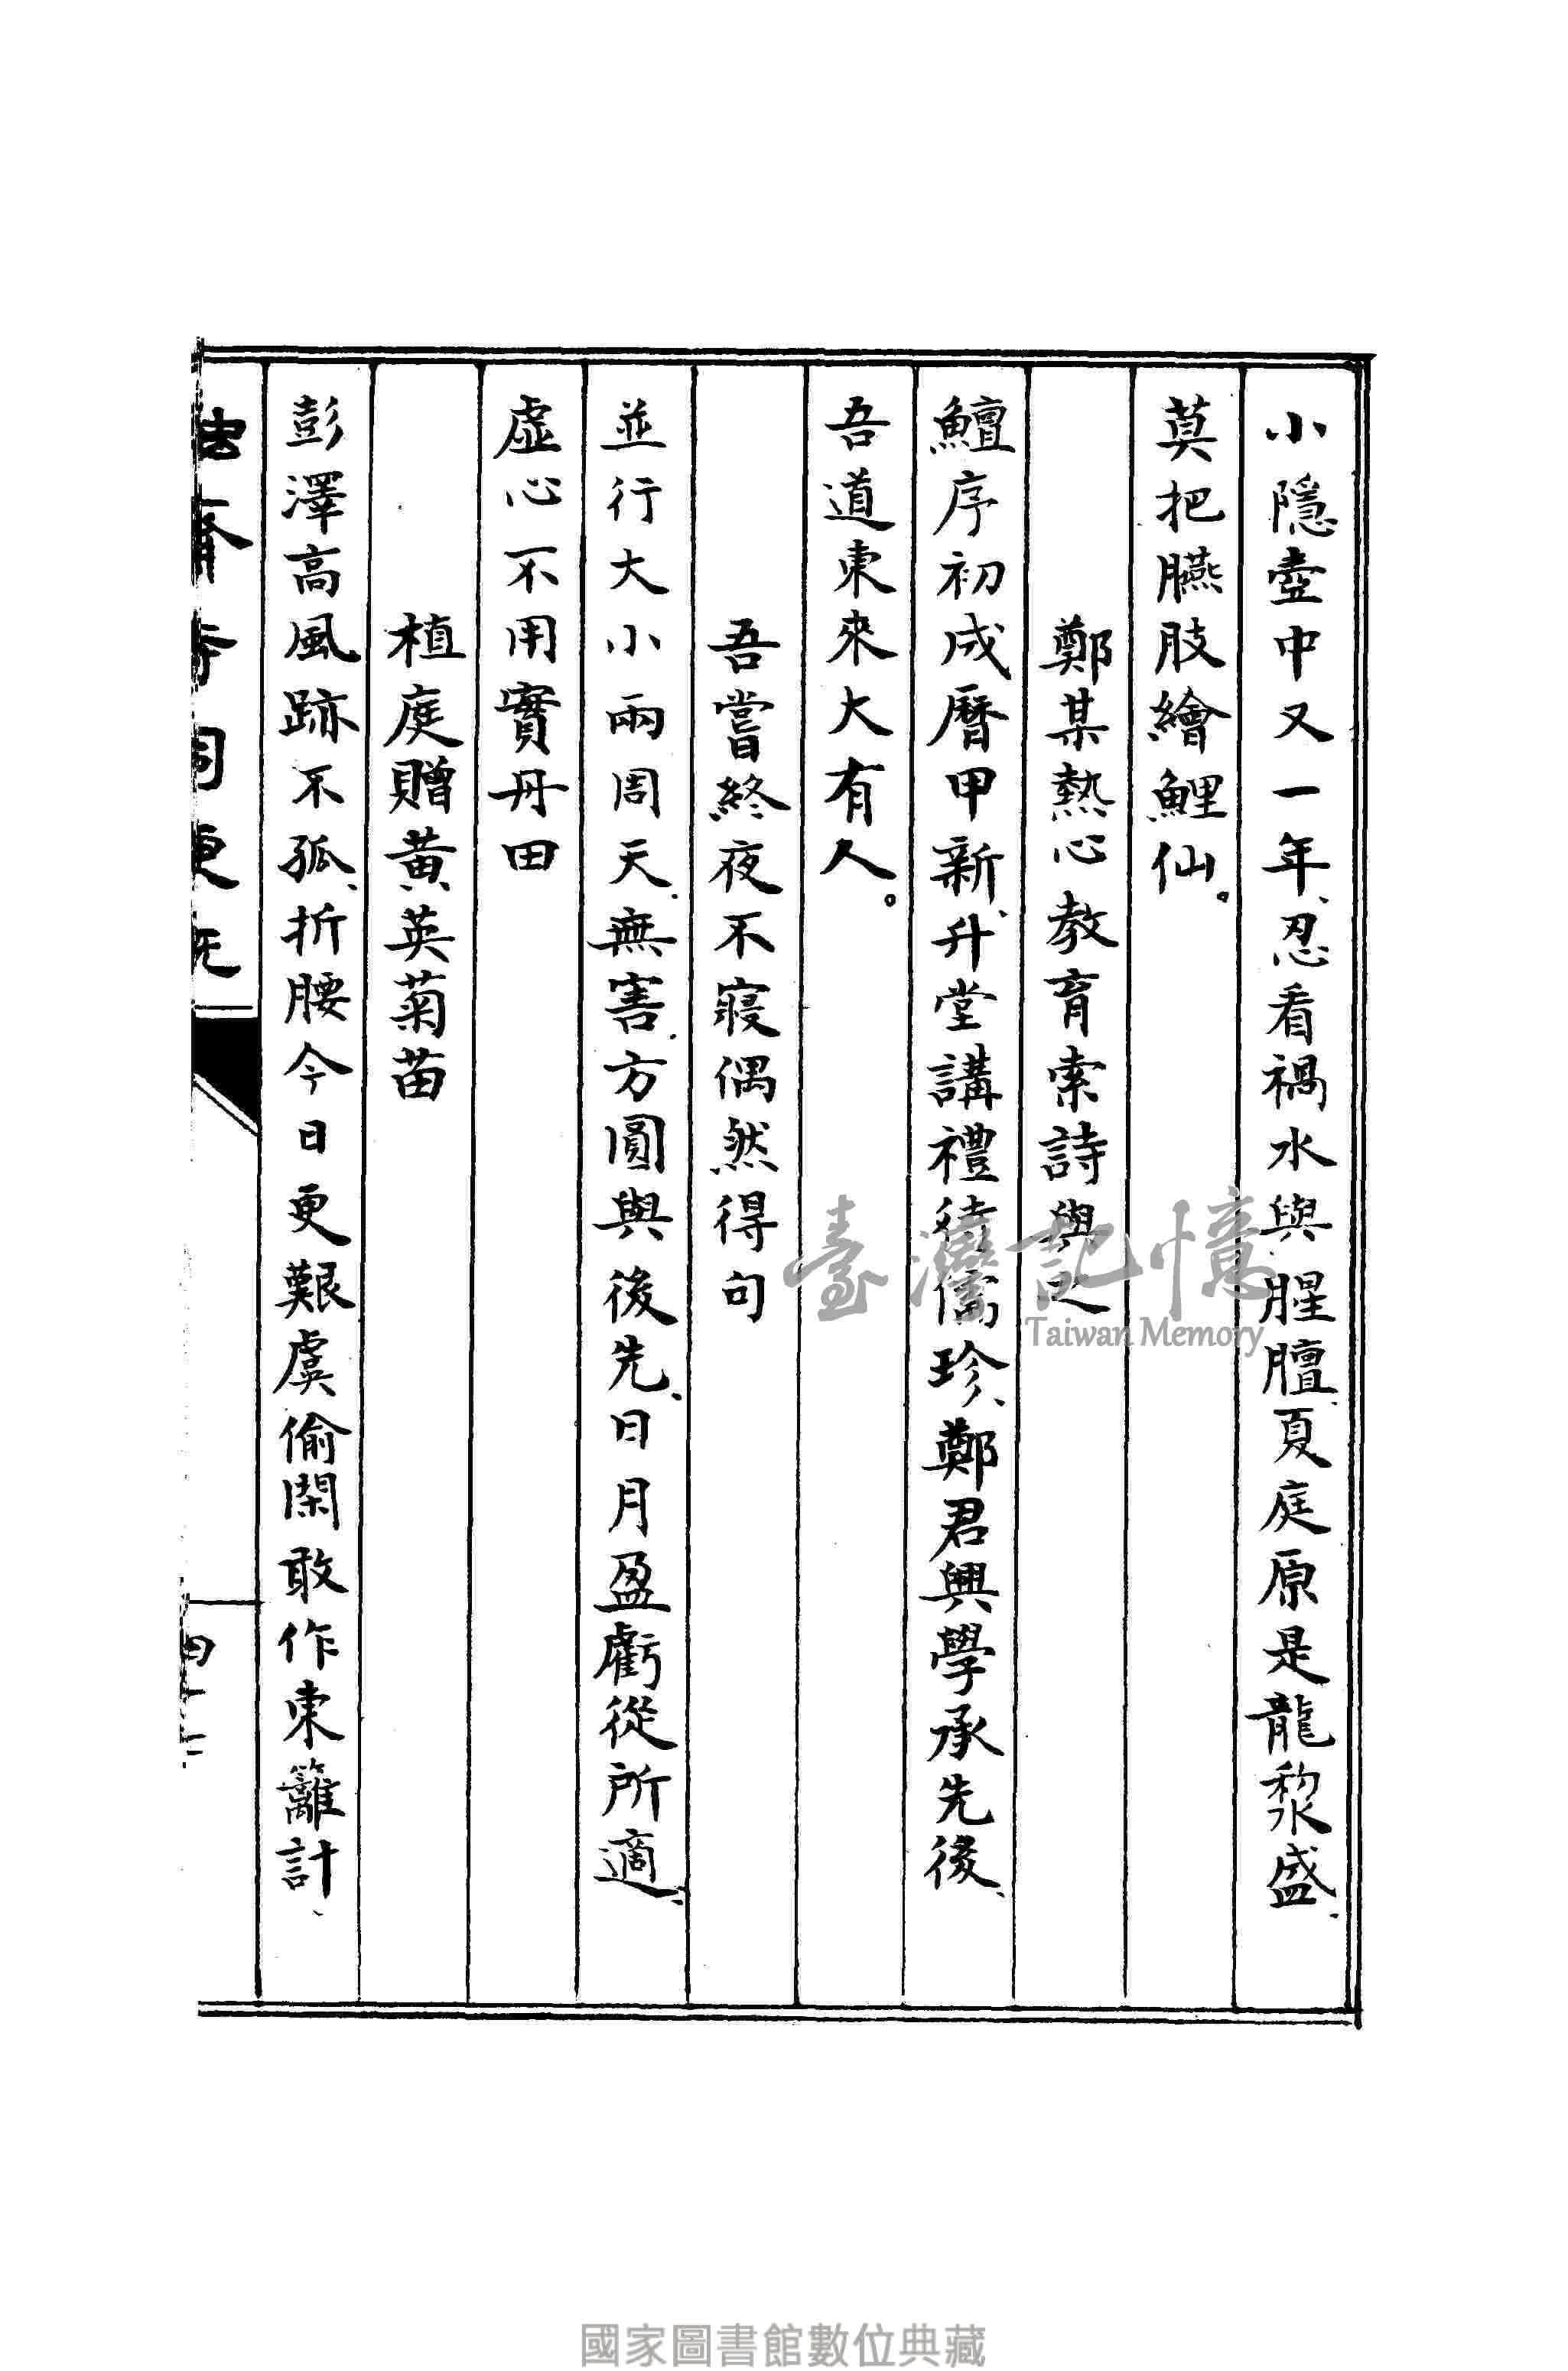 小隱壺中又一年、忍看禍水與腥膻、夏庭原是龍漦盛、
莫把臙肢繪鯉仙。
鄭某熱心教育索詩與之
鱣序初成曆甲新、升堂講禮待儒珍、鄭君興學承先後、
吾道東來大有人。
吾嘗終夜不寢偶然得句
並行大小兩周天、無害方圓與後先、日月盈虧從所適、
虛心不用實丹田
植庭贈黃英菊苗
彭澤高風跡不孤、折腰今日更艱虞偷閑敢作東籬計、
臺灣記憶
Taiwan Memory
國家圖書館數位典藏